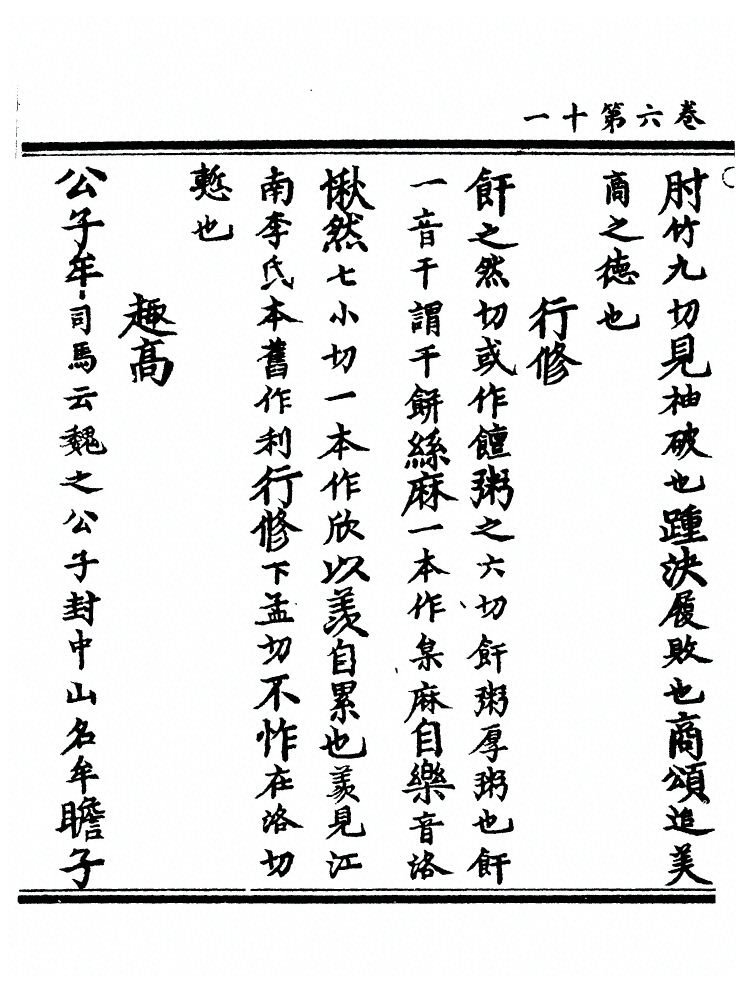 卷六第十一
肘竹九切見袖破也踵決履敗也商頌追美
商之德也
行修
飦之然切或作饘粥之六切飦粥厚粥也飦
一音干謂干餅絲麻一本作枲麻自樂音洛
愀然七小切一本作欣以羨自累也羨見江
南李氏本舊作利行修下孟切不怍在洛切
慙也
趣高
公子牟司馬云魏之公子封中山名牟瞻子